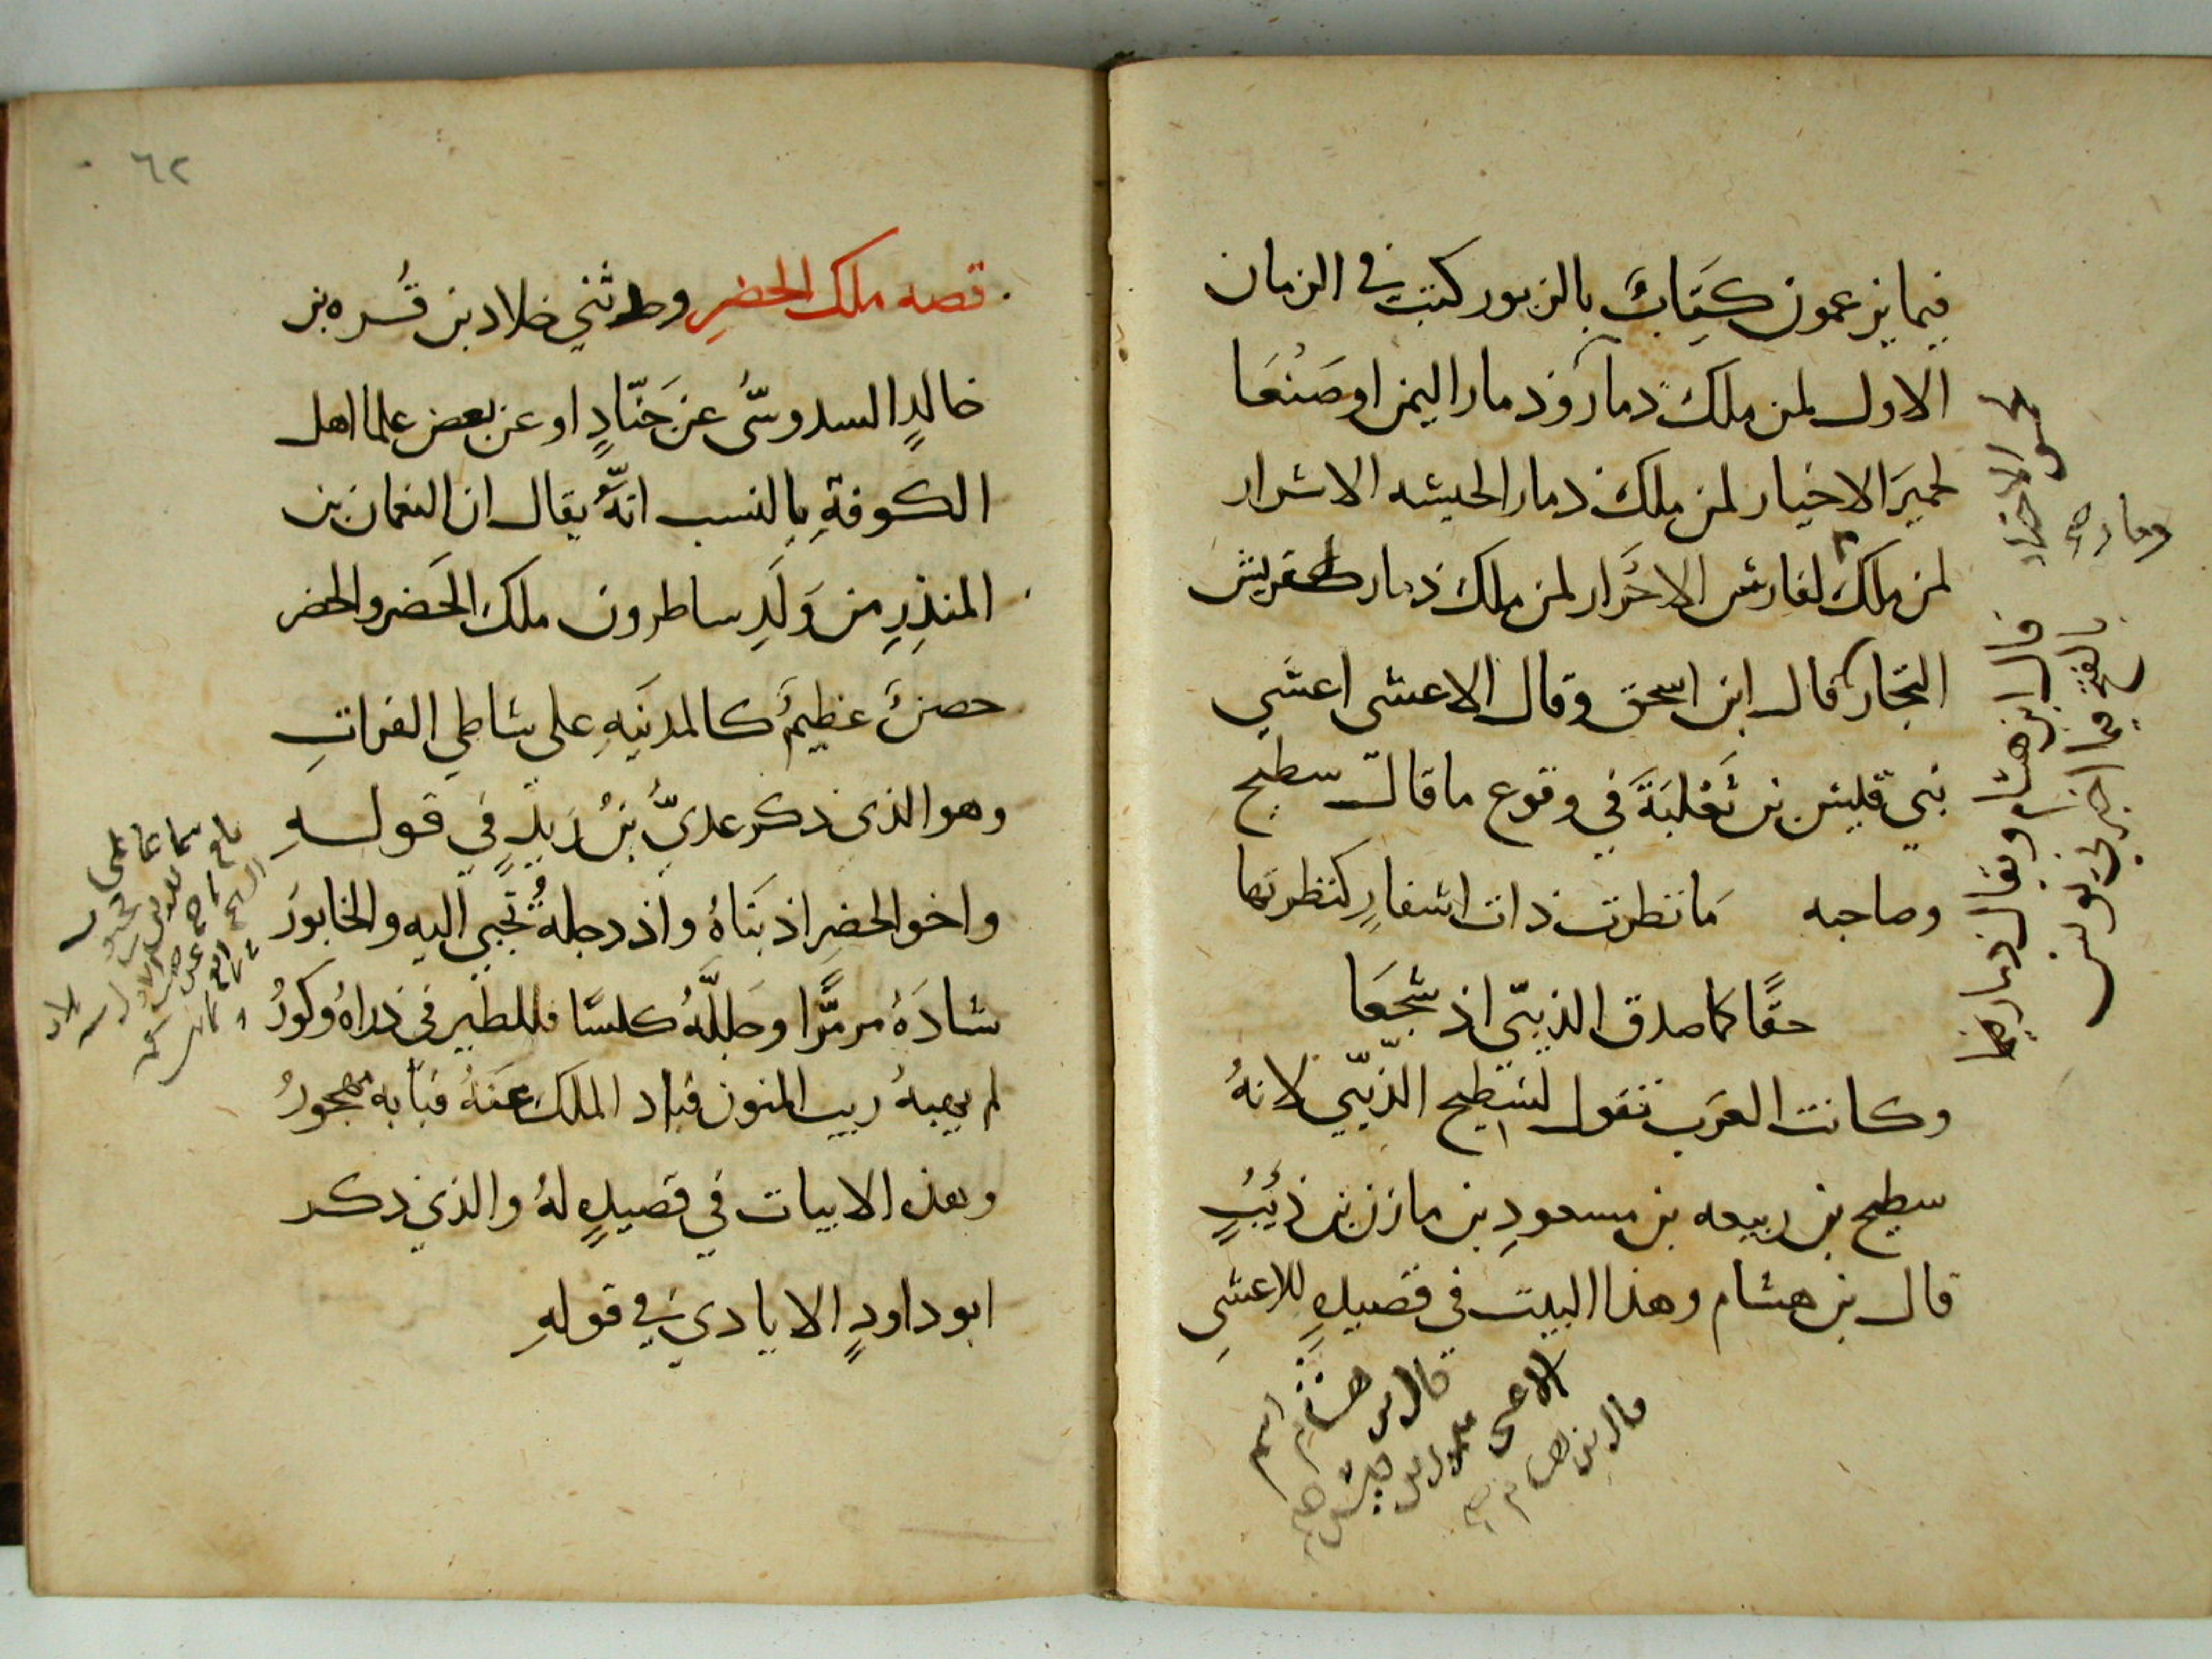 فيما يزعمون كِتَابٌ بالزبور كتب في الزمان
الاول لمن ملك ذمار وذمار اليمن او صَنْعَا
لحميَر الاخيار لمن ملك ذمار الحبشه الاشرار
لمن ملك لفارس الاحْرَار لمن ملك ذمار لقريش
التجار قال ابن اسحق وقال الاعشى اعشى
بني قيس بن ثَعْلبَةَ في وقوع ما قالت سطيح
وصاحبه مَا نظرت ذات اشفارٍ كنظرتها
حقًا كما صدق الذيبيّ اذ سَجَعَا
وكانت العَرَب تقول لسَطِيح الذِّيبيّ لانهُ
سطيح بن ربيعه بن مسعودِ بن مازن بن ذئبٍ
قال بن هشام وهذا البيت في قصيدهٍ للاعشى
قال ابن هشام ويقال ذمار فيما
بالفتح فيما اخبرني يونس
قال بن هشام اسم
الاعشى
قال بن هشام
٦٢
قصه ملك الحضرِ وحدثني خلاد بن قُره بن
خالدٍ السدوسّى عن جَنّادٍ او عن بعض علما اهل
الكوفةِ بالنسب انّهُ يقال ان النعمان بن
المنذِرِ مِن وَلَدِ ساطرون ملك الحَضر والحضر
حصنٌ عظيمٌ كالمدينَهِ على شاطي الفراتِ
وهو الذي ذكر عديُّ بنُ زَيدٍ في قولهِ
واخو الحضرِ اذ بَنَاهُ واذ دجلةُ تُجْبي اليه والخابورَ
شادَهُ مرمَّرًا وجَللَّهُ كلسًا فللطَّيرِ في ذراهُ وكورُ
لم يهبهُ ريب المنون فباد الملك عَنهُ فبابه مهجورُ
وهذه الابيات في قصيدهٍ لهُ والذي ذكر
ابو داودٍ الايادي في قولهِ